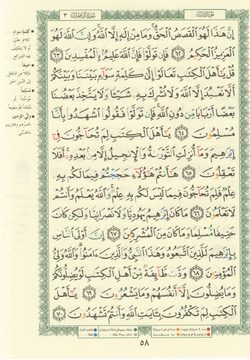 إِنَّ هَٰذَا لَهُوَ ٱلْقَصَصُ ٱلْحَقُّ وَمَا مِنْ إِلَٰهٍ إِلَّا ٱللَّهُ وَإِنَّ ٱللَّهَ لَهُوَ
ٱلْعَزِيزُ ٱلْحَكِيمُ ٦٢ فَإِن تَوَلَّوْا۟ فَإِنَّ ٱللَّهَ عَلِيمٌۢ بِٱلْمُفْسِدِينَ ٦٣
قُلْ يَٰٓأَهْلَ ٱلْكِتَٰبِ تَعَالَوْا۟ إِلَىٰ كَلِمَةٍ سَوَآءٍۭ بَيْنَنَا وَبَيْنَكُمْ
أَلَّا نَعْبُدَ إِلَّا ٱللَّهَ وَلَا نُشْرِكَ بِهِۦ شَيْـًٔا وَلَا يَتَّخِذَ بَعْضُنَا
بَعْضًا أَرْبَابًا مِّن دُونِ ٱللَّهِ فَإِن تَوَلَّوْا۟ فَقُولُوا۟ ٱشْهَدُوا۟ بِأَنَّا
مُسْلِمُونَ ٦٤ يَٰٓأَهْلَ ٱلْكِتَٰبِ لِمَ تُحَآجُّونَ فِىٓ
إِبْرَٰهِيمَ وَمَآ أُنزِلَتِ ٱلتَّوْرَىٰةُ وَٱلْإِنجِيلُ إِلَّا مِنۢ بَعْدِهِۦٓ أَفَلَا
تَعْقِلُونَ ٦٥ هَٰٓأَنتُمْ هَٰٓؤُلَآءِ حَٰجَجْتُمْ فِيمَا لَكُم بِهِۦ
عِلْمٌ فَلِمَ تُحَآجُّونَ فِيمَا لَيْسَ لَكُم بِهِۦ عِلْمٌ وَٱللَّهُ يَعْلَمُ وَأَنتُمْ
لَا تَعْلَمُونَ ٦٦ مَا كَانَ إِبْرَٰهِيمُ يَهُودِيًّا وَلَا نَصْرَانِيًّا وَلَٰكِن كَانَ
حَنِيفًا مُّسْلِمًا وَمَا كَانَ مِنَ ٱلْمُشْرِكِينَ ٦٧ إِنَّ أَوْلَى ٱلنَّاسِ
بِإِبْرَٰهِيمَ لَلَّذِينَ ٱتَّبَعُوهُ وَهَٰذَا ٱلنَّبِىُّ وَٱلَّذِينَ ءَامَنُوا۟ وَٱللَّهُ وَلِىُّ
ٱلْمُؤْمِنِينَ ٦٨ وَدَّت طَّآئِفَةٌ مِّنْ أَهْلِ ٱلْكِتَٰبِ لَوْ يُضِلُّونَكُمْ
وَمَا يُضِلُّونَ إِلَّآ أَنفُسَهُمْ وَمَا يَشْعُرُونَ ٦٩ يَٰٓأَهْلَ
ٱلْكِتَٰبِ لِمَ تَكْفُرُونَ بِـَٔايَٰتِ ٱللَّهِ وَأَنتُمْ تَشْهَدُونَ ٧٠
٥٨